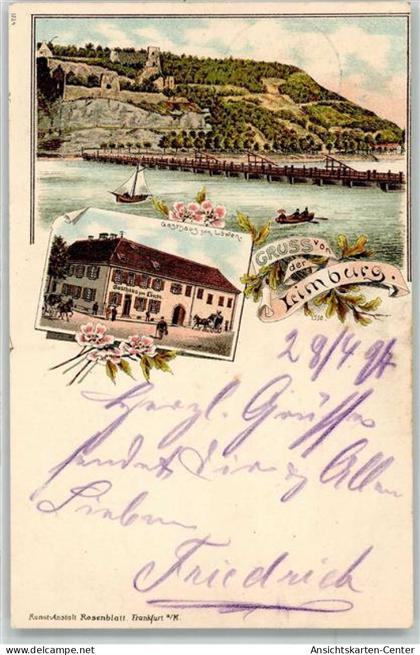 1224
Gasthaus zum Löwen.
Gasthaus zum Löwen
GRUSS von
der
Limburg.
28/4 97
Herzl. Grüsse
sendet Dir & Allen
Lieben
Friedrich
Kunst-Anstalt Rosenblatt, Frankfurt a/M.
Ansichtskarten-Center